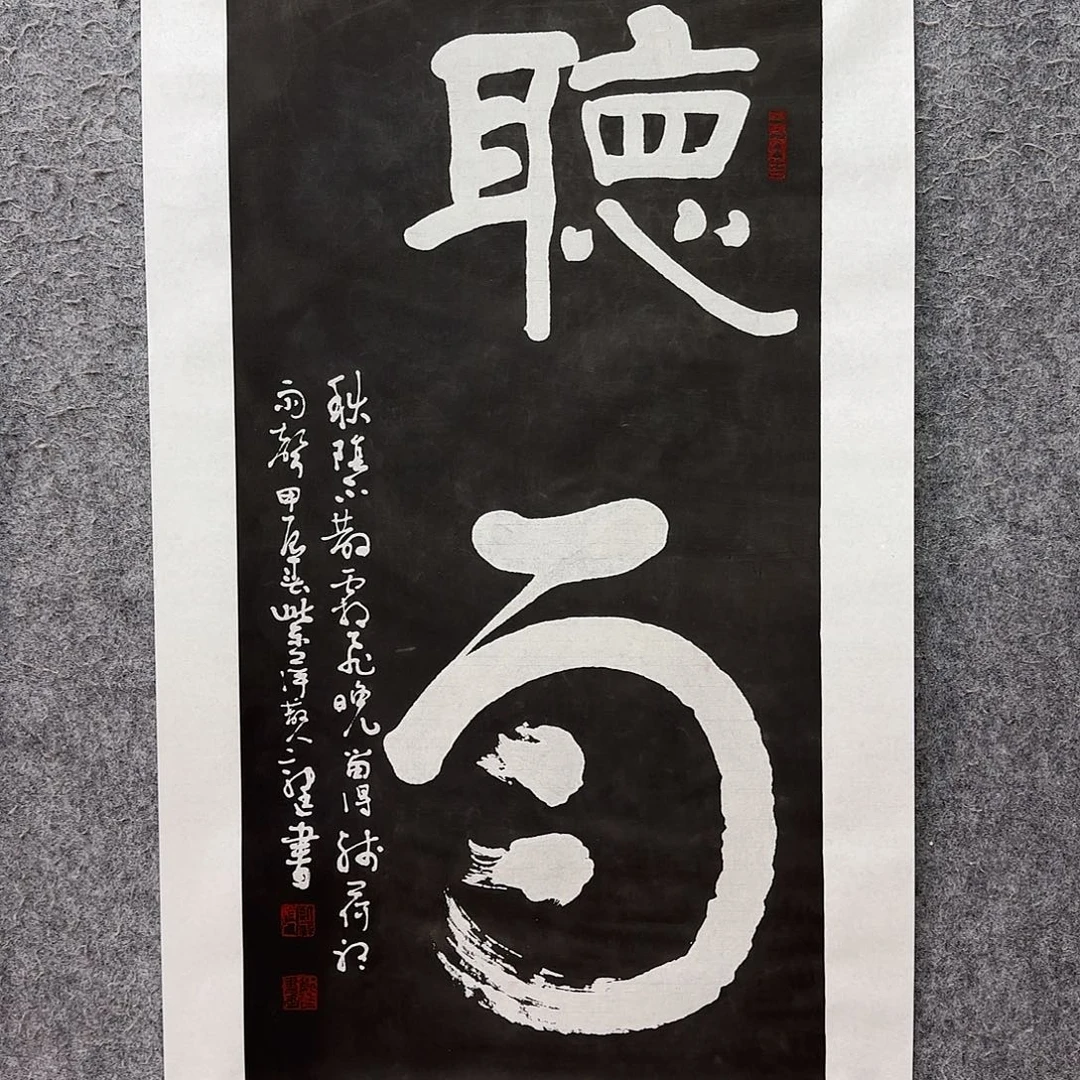 聽雨
秋陰不散霜飛晚留得殘荷聽
雨聲甲辰春紫洋散人一聽書